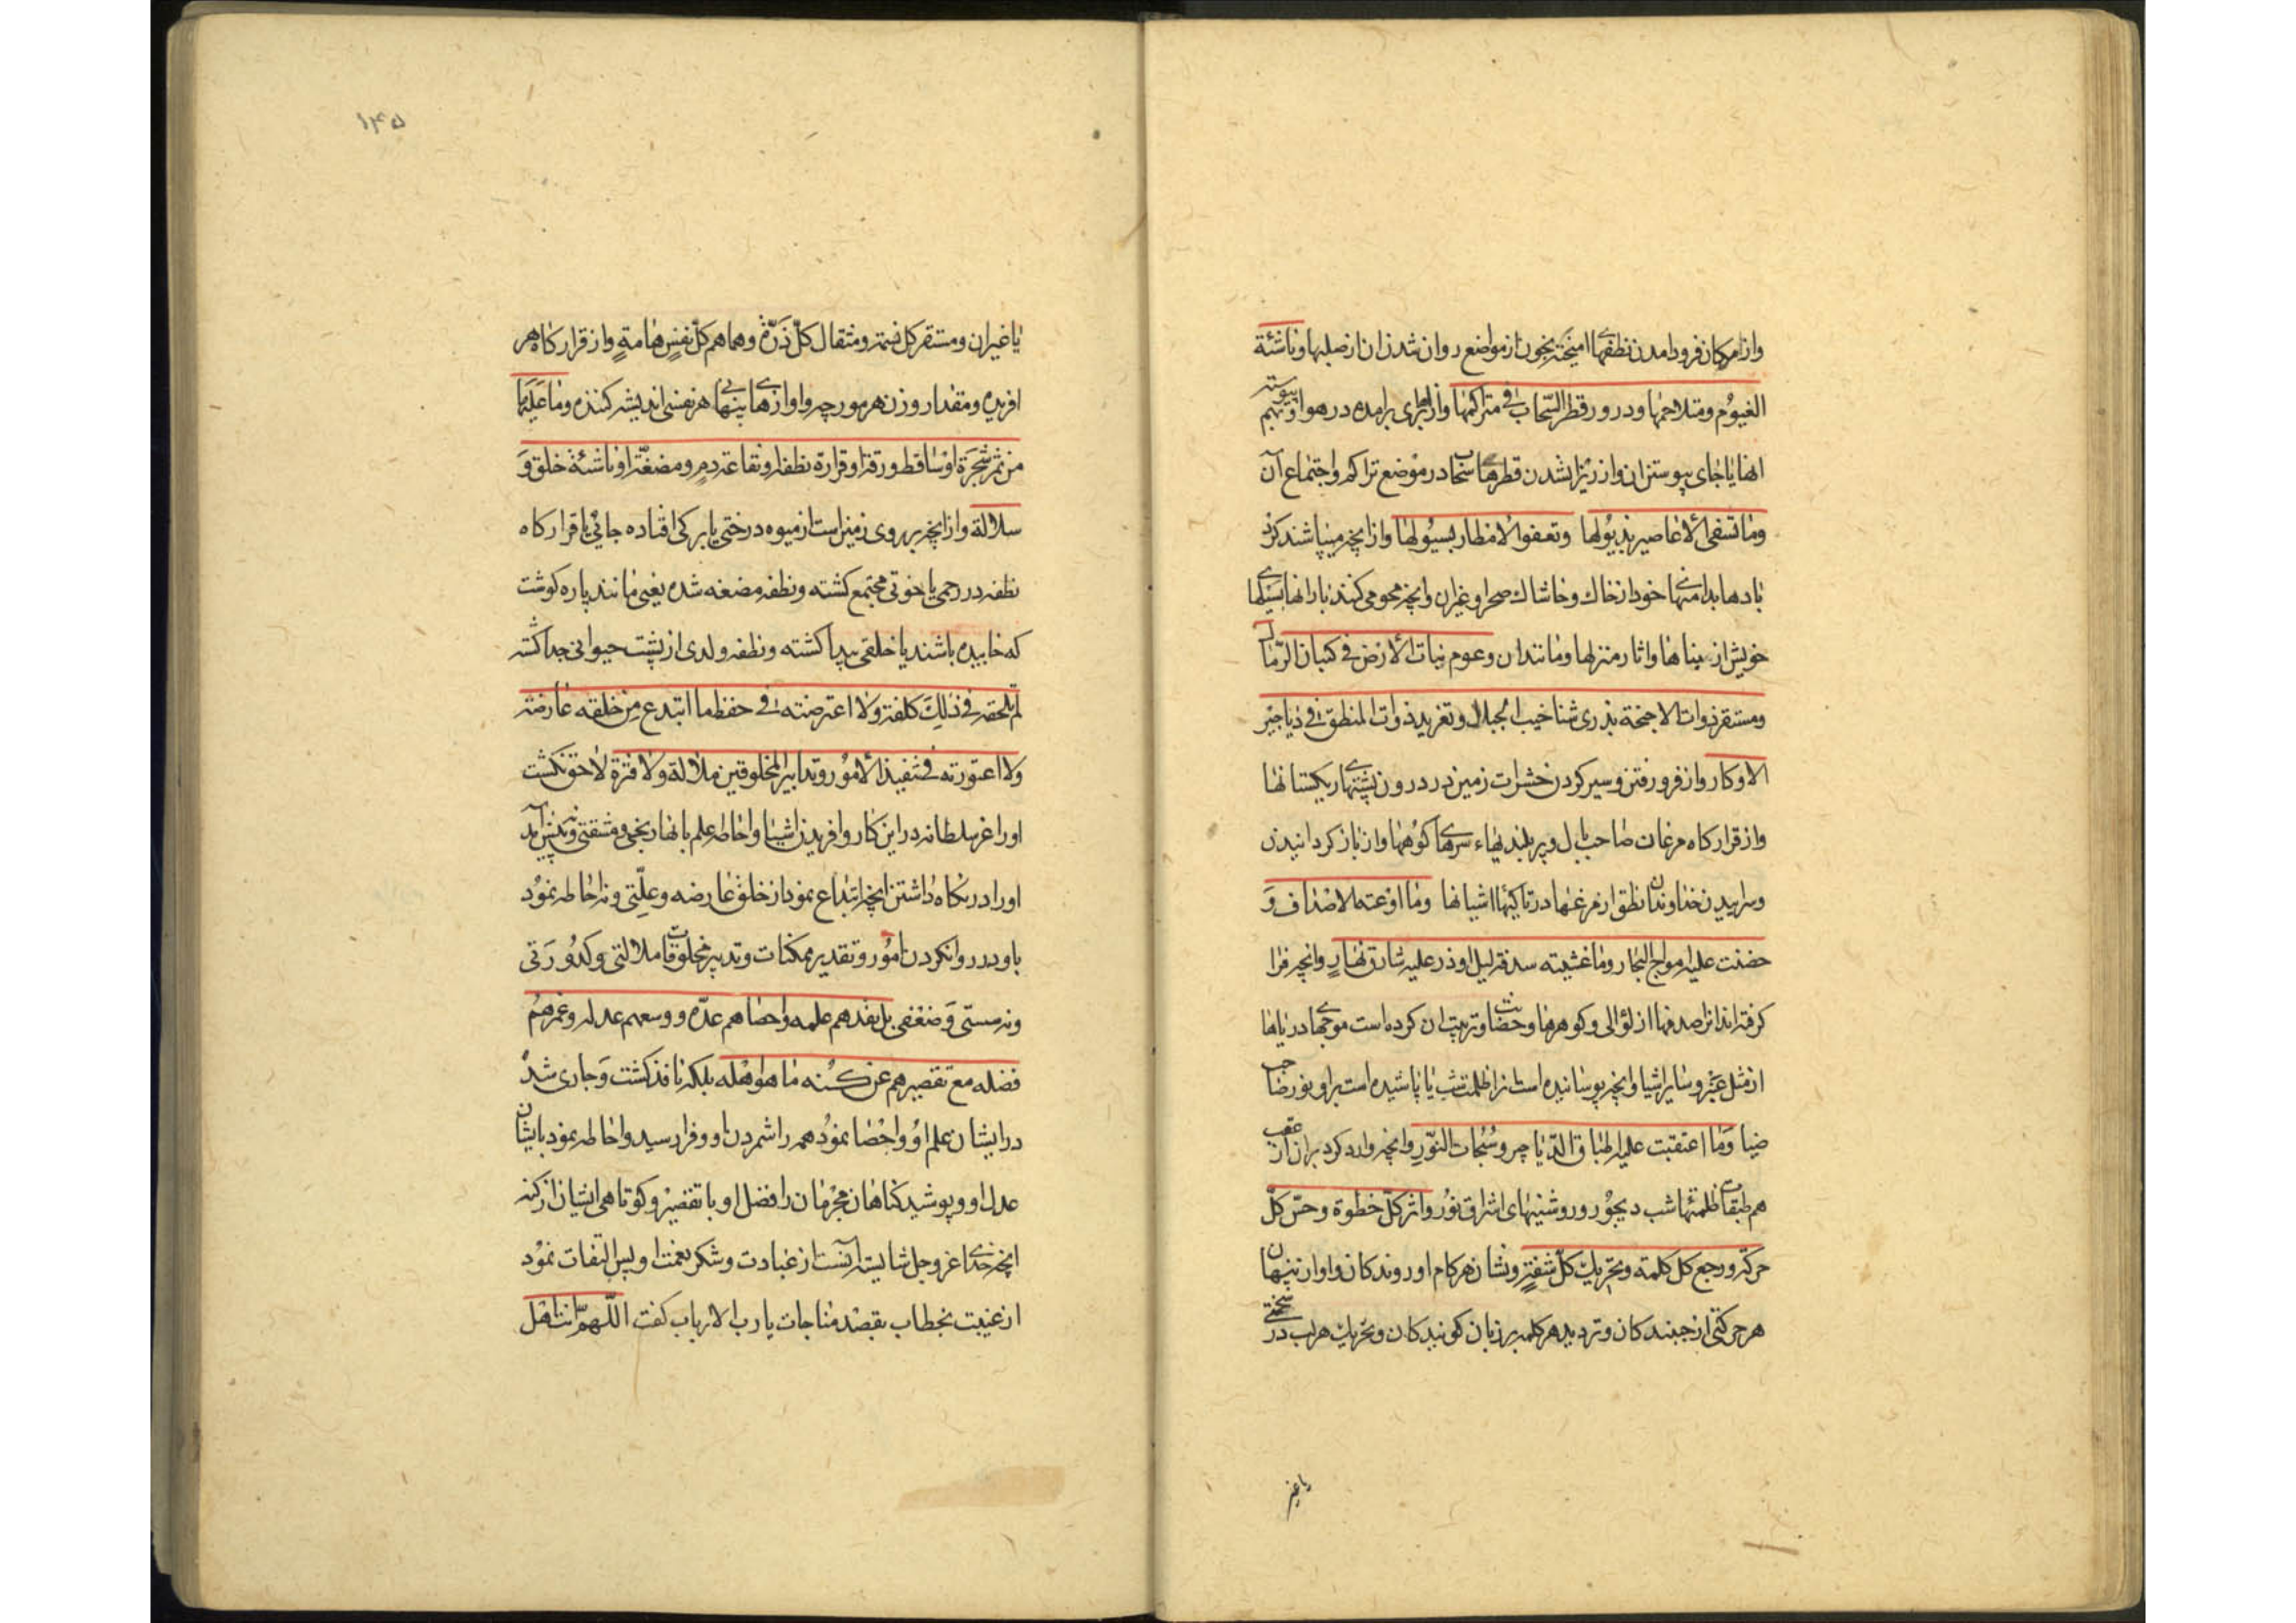 وازامکان فرودامدن نطفهای امیخته بخون ازمواضع روان شدن ان ازصلبها وناشئة
الغیوم ومتلاحمها ودرور قطر السّحاب فی متراکمها واز ابرهای برامده درهوا وبهم پیوسته
انها یا جای پیوستن ان واز ریزا شدن قطرهای سحاب در موضع تراکم واجتماع آن
وما تسفی الاعاصیر بذیولها وتعفو الامطار بسیولها وازانچه میپاشند کرد
بادها بدامنهای خود ازخاك وخاشاك صحرا وغیران وانچه محو می کنند بارانها بسیلهای
خویش از بناها واثار منزلها ومانندان وعوم نبات الأرض فی کثبان الرّمال
ومستقر ذوات الاجنحة بذری شناخیب الجبال وتغرید ذوات المنطق فی دیاجیر
الاوکار واز فرو رفتن وسیر کردن حشرات زمین در درون پشتهای ریکستانها
وازقرارکاه مرغان صاحب بال وپر ببلندیهاء سرهای کوهها واز باز کردانیدن
وسراییدن خداوندان نطق ازمرغها درتاکیهای اشیانها وما اوعته الاصداف وَ
حضنت علیه امواج البحار وما غشیته سدفة لیل او ذر علیه شارق نهارٍ وانچه فرا
کرفته اند انرا صدفها از لؤالی وکوهرها وحضانت وتربیت ان کرده است موجهای دریاها
ازمثل عنبر وسایر اشیا وانچه پوشانیده است انرا ظلمت شب یا پاشیده است براو نور صاحب
ضیا وما اعتقبت علیه اطباق الدّیاجیر وسُبُحات النّورِ وانچه وارد کرد بران از عقب
هم طبقات ظلمتهای شب دیجور وروشنیهای اشراق نور واثر کلّ خطوة وحسّ کلّ
حرکة ورجع کل کلمة وتحریك کلّ شفةٍ ونشان هرکام او روندکان واواز پنهان
هرحرکتی ازجنبندکان وتردید هرکلمه برزبان کویندکان وتحریك هرلب در سخنی
یا غیر
۱۴۵
یا غیران ومستقر کل نسمة ومثقال کلّ ذرّةٍ وهماهم کلّ نفسٍ هامةٍ وازقرارکاه هر
افریده ومقدار وزن هر مورچه واوازهای پنهانی هر نفسی اندیشه کننده وما علیها
من ثمر شجرة او ساقط ورقة او قرارة نطفة او نقاعة دمٍ ومضغة او ناشئة خلق وَ
سلالة وازانچه بر روی زمین است ازمیوه درختی یا برکی افتاده جائی یا قرارکاه
نطفه در رحمی یا خونی مجتمع کشته ونطفه مضغه شده یعنی مانند پاره کوشت
که خاییده باشند یا خلقی پیدا کشته ونطفه ولدی ازپشت حیوانی جدا کشته
لم تلحقه فی ذلِكَ کلفة ولا اعترضته فی حفظ ما ابتدع مِن خلقه عارضة
ولا اعتورته فی تنفیذ الأمُور وتدابیر المخلوقین ملالة ولا فترة لاحق نکشت
اورا عز سلطانه دراین کار وافریدن اشیا واحاطه علم بانها رنجی ومشقتی ونه پیش آمد
اورا درنکاه داشتن انچه ابتداع نمود ازخلق عارضه وعلّتی ونه احاطه نمود
باو در روان کردن امُور وتقدیر ممکنات وتدبیر مخلوقات ملالتی وکدُورَتی
ونه سستی وَضعفی بل نفدهم علمه واحصاهم عدّه ووسعهم عدله وغمرهم
فضله مع تقصیرهم عن کُنه ما هو اهله بلکه نافذ کشت وَجاری شد
درایشان علم اوُ واحصا نموُد همه را شمردن او وفرا رسید واحاطه نمود بایشان
عدل او وپوشید کناهان مجرمان را فضل او با تقصیر وکوتاهی ایشان ازکنه
انچه خدای عز وجل شایسته انست ازعبادت وشکر نعمت او پس التفات نمُود
ازغیبت بخطاب بقصد مناجات یا رب الارباب کفت اللّهمّ انت اهل